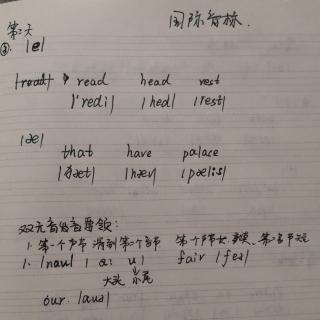 国际音标.
第2天
③. |e|
read head rest
|'redi| |hed| |rest|
|æ|
that have palace
|ðæt| |hæv| |pælis|
双元音发音要领:
1. 第一个音节 滑到第二个音节 第一个音节长 第二音节短
1. |nau| | a: u| fair |feə|
大头 小尾
our. |auə|